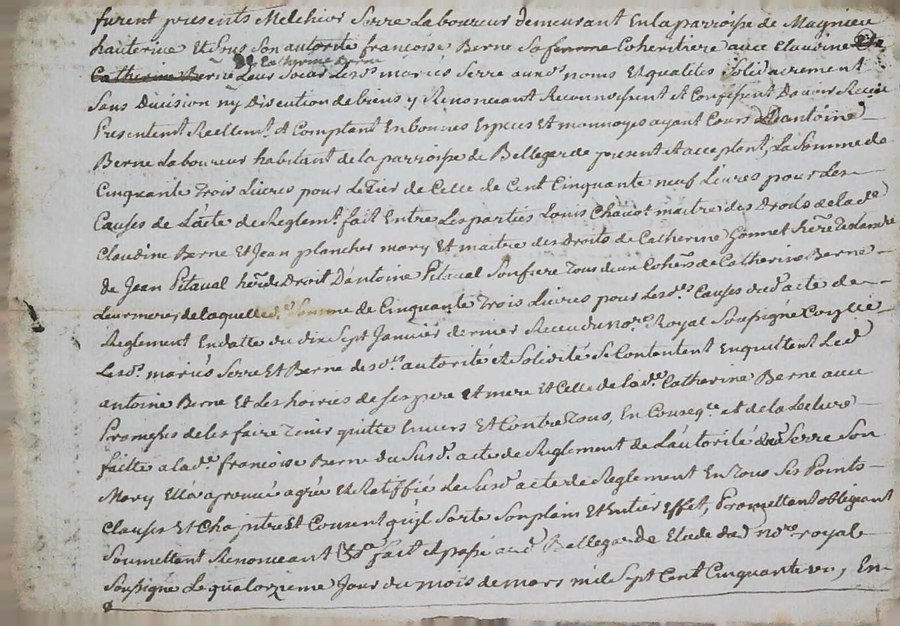 furent presents Melchior Serre Laboureur demeurant En la parroisse de Magnieu
hauterive Et sous son autorité françoise Berne sa femme Coheritiere avec Claudine
et Catherine Berne
Catherine Berne Leur Soeur Lesd. mariés Serre auxd. noms Et qualités solidairement
sans Division ny Discution de biens y Renonceant Reconnoissent et Confessent Davoir Receu
Presentemt Reellemt et Comptant En bonnes Especes Et monnoyes ayant Cours Dantoine
Berne Laboureur habitant de la parroisse de Bellegarde present et acceptant, La Somme de
Cinquante Trois Livres pour Le Tier de Celle de Cent Cinquante neuf Livres pour Les
Causes de L'acte de Reglemt fait Entre Les parties Louis Chavot maitre des Droits de lade
Claudine Berne Et Jean plancher mary Et maitre des Droits de Catherine Gonnet
de Jean Pitaval her de Droit D'antoine Pitaval son frere Tous deux Cohers de Catherine Berne
Leur mere, de laquelle de Somme de Cinquante Trois Livres pour Lesdes Causes dud acte de
Reglement En datte du dix Sept Janvier dernier Receu du nore Royal Soussigné
Lesd. mariés Serre Et Berne desd. autorité et Solidité se Contentent En quittent Led
antoine Berne Et Les hoiries de ses pere et mere Et Celle de lade Catherine Berne avec
Promesses de les faire Tenir quitte Envers Et Contre Tous, En Conseqce et de la Lecture
faitte a lade françoise Berne du Susd. acte de Reglement de L'autorité dud Serre Son
Mary Ella aprouvé agréé Et Ratiffié Le Susd acte de Reglement En Tous Ses Points
Clauses Et Chapitres Et Consent quil Sorte Son plain Et Entier Effet, Promettant obligeant
Soumettant Renonceant &a fait et passé aud Bellegarde Etude dud nore royal
Soussigné Le quatorzieme Jour du mois de mars mil Sept Cent Cinquante un, En